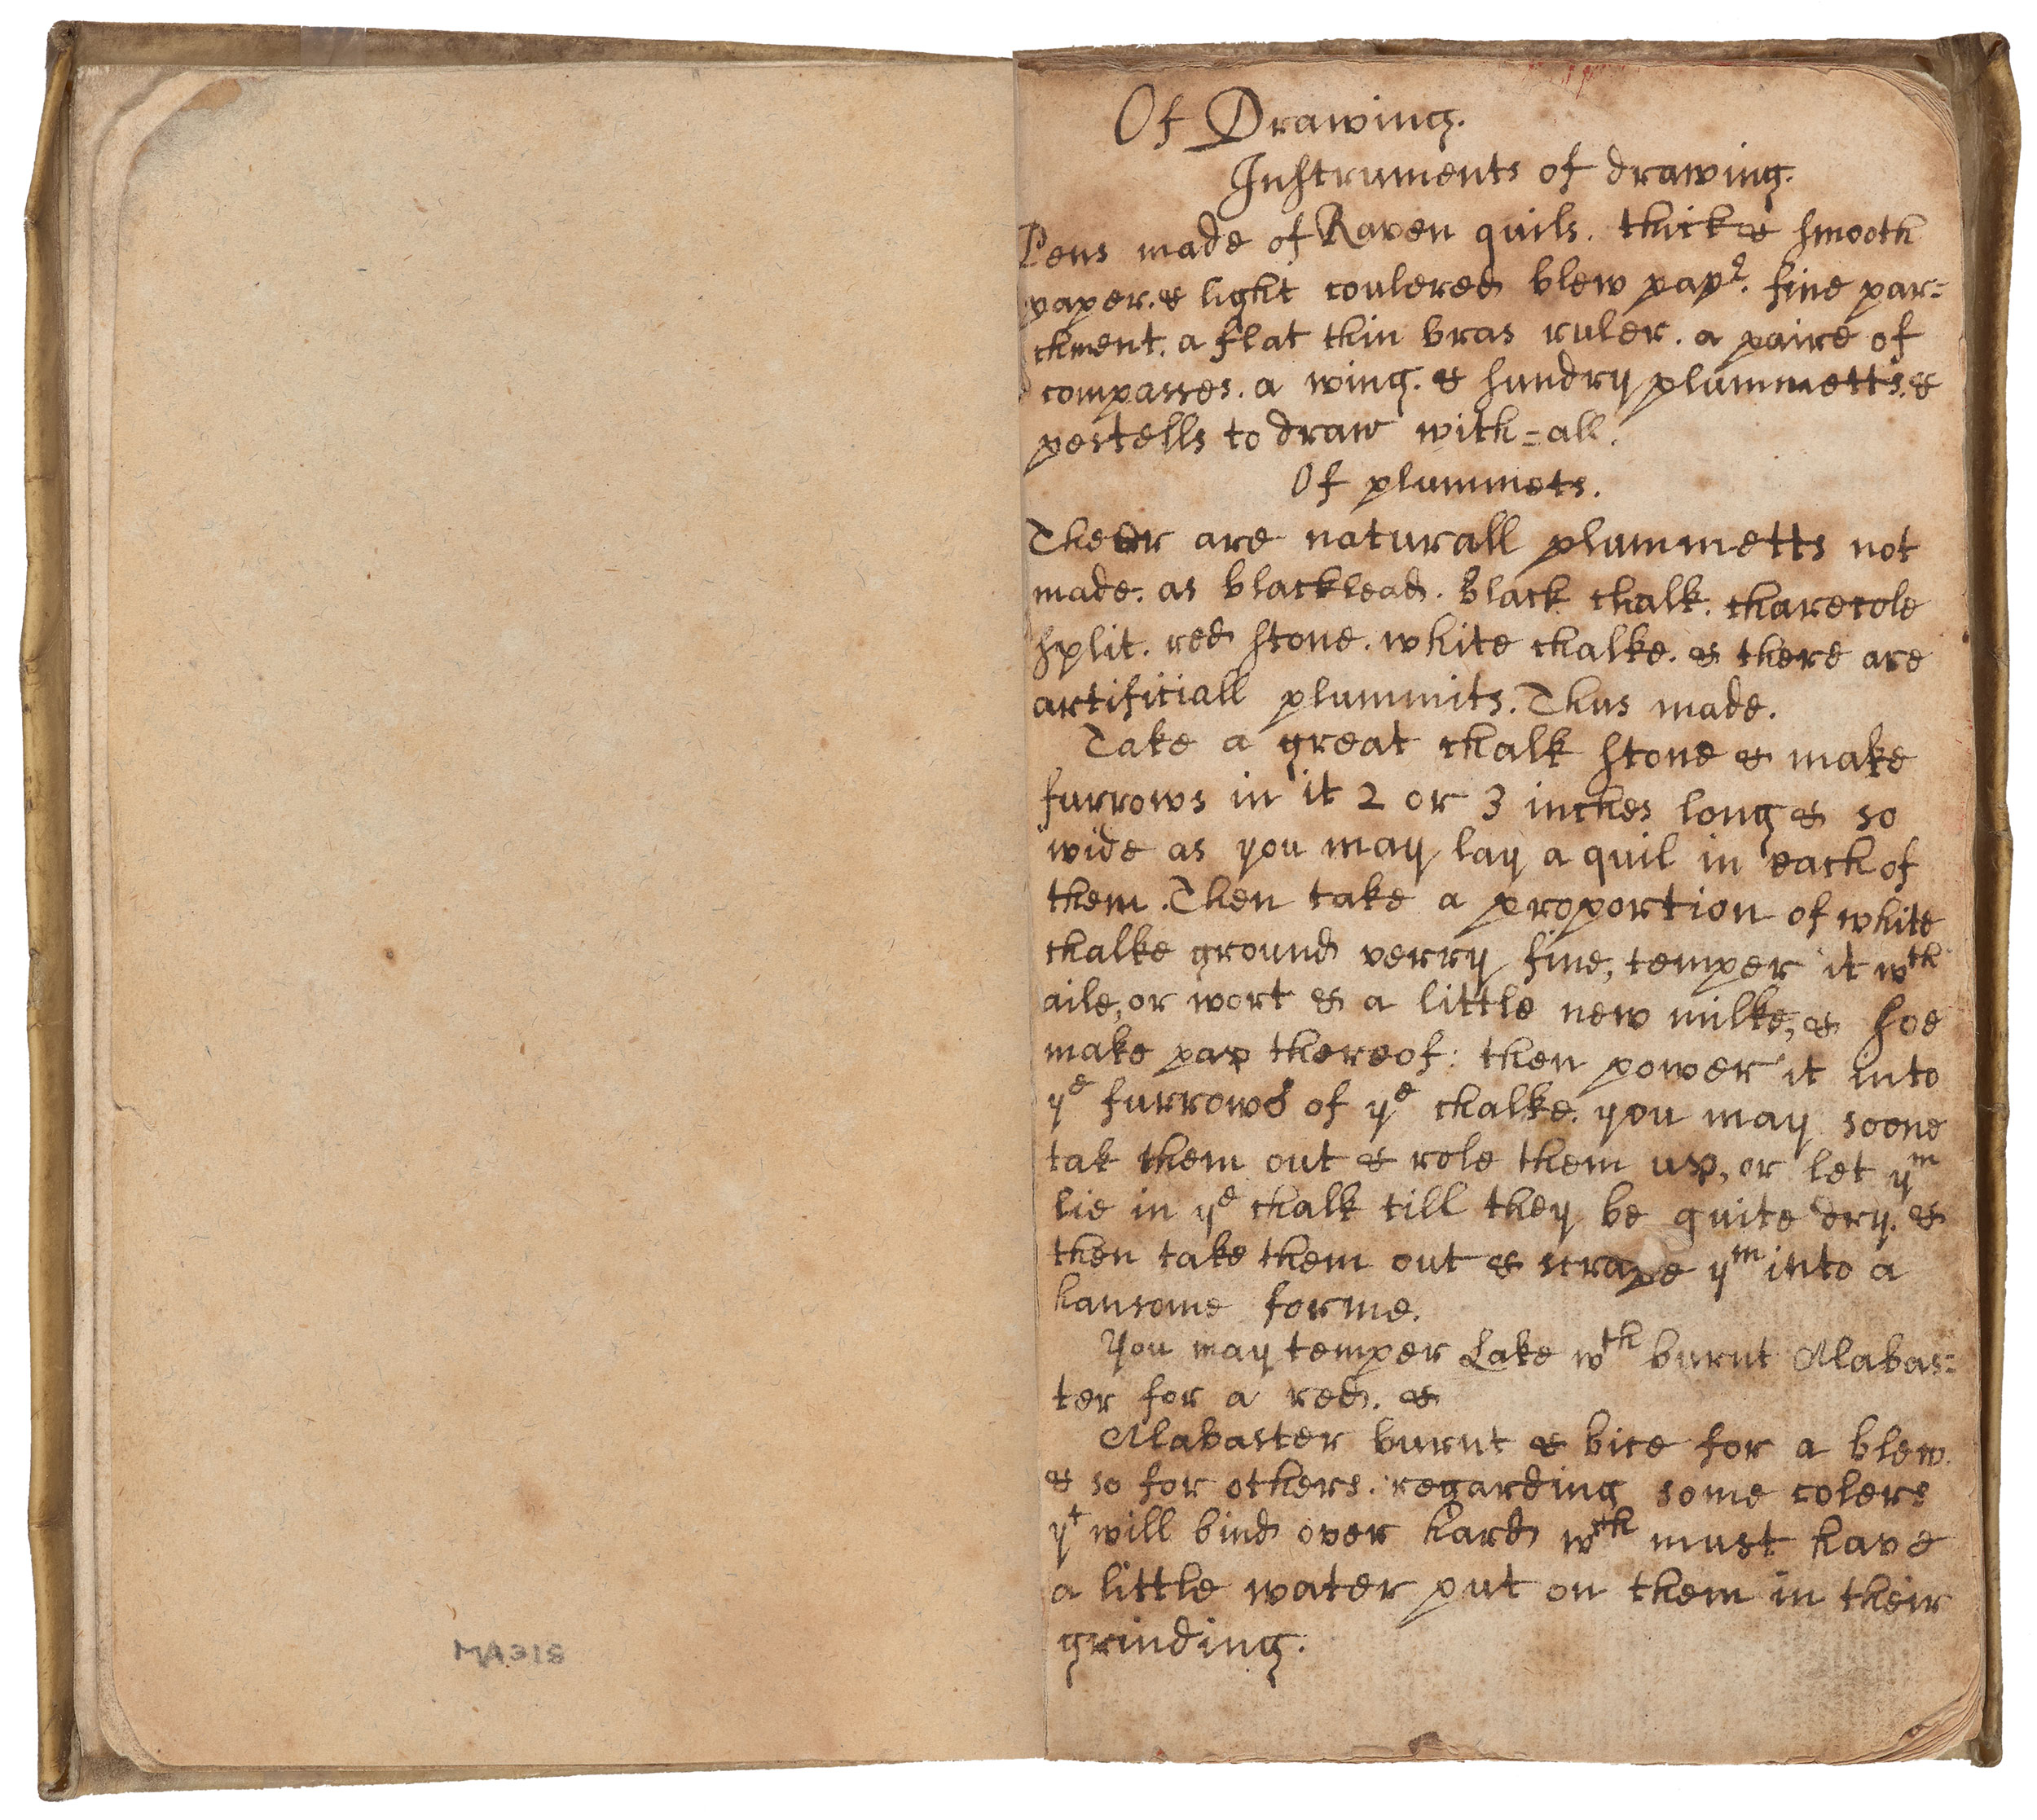 MA 318
Of Drawing.
Instruments of drawing.
Pens made of Raven quils. thick & smooth
paper. & light coulered blew papr. fine par=
chment. a flat thin bras ruler. a paire of
compasses. a wing. & sundry plummetts. &
pestells to draw with=all.
Of plummets.
Ther are naturall plummetts not
made. as blacklead. black chalk. charecole
split. red stone. white chalke. & there are
artificiall plummits. Thus made.
Take a great chalk stone & make
furrows in it 2 or 3 inches long & so
wide as you may lay a quil in each of
them. Then take a proportion of white
chalke ground verry fine, temper it wth
aile, or wort & a little new milke, & soe
make pap thereof: then power it into
ye furrows of ye chalke. you may soone
tak them out & role them up, or let ym
lie in ye chalk till they be quite dry. &
then take them out & scrape ym into a
hansome forme.
You may temper Lake wth burnt Alabas=
ter for a red. &
Alabaster burnt & bice for a blew.
& so for others. regarding some colers
yt will bind over hard wch must have
a little water put on them in their
grinding.